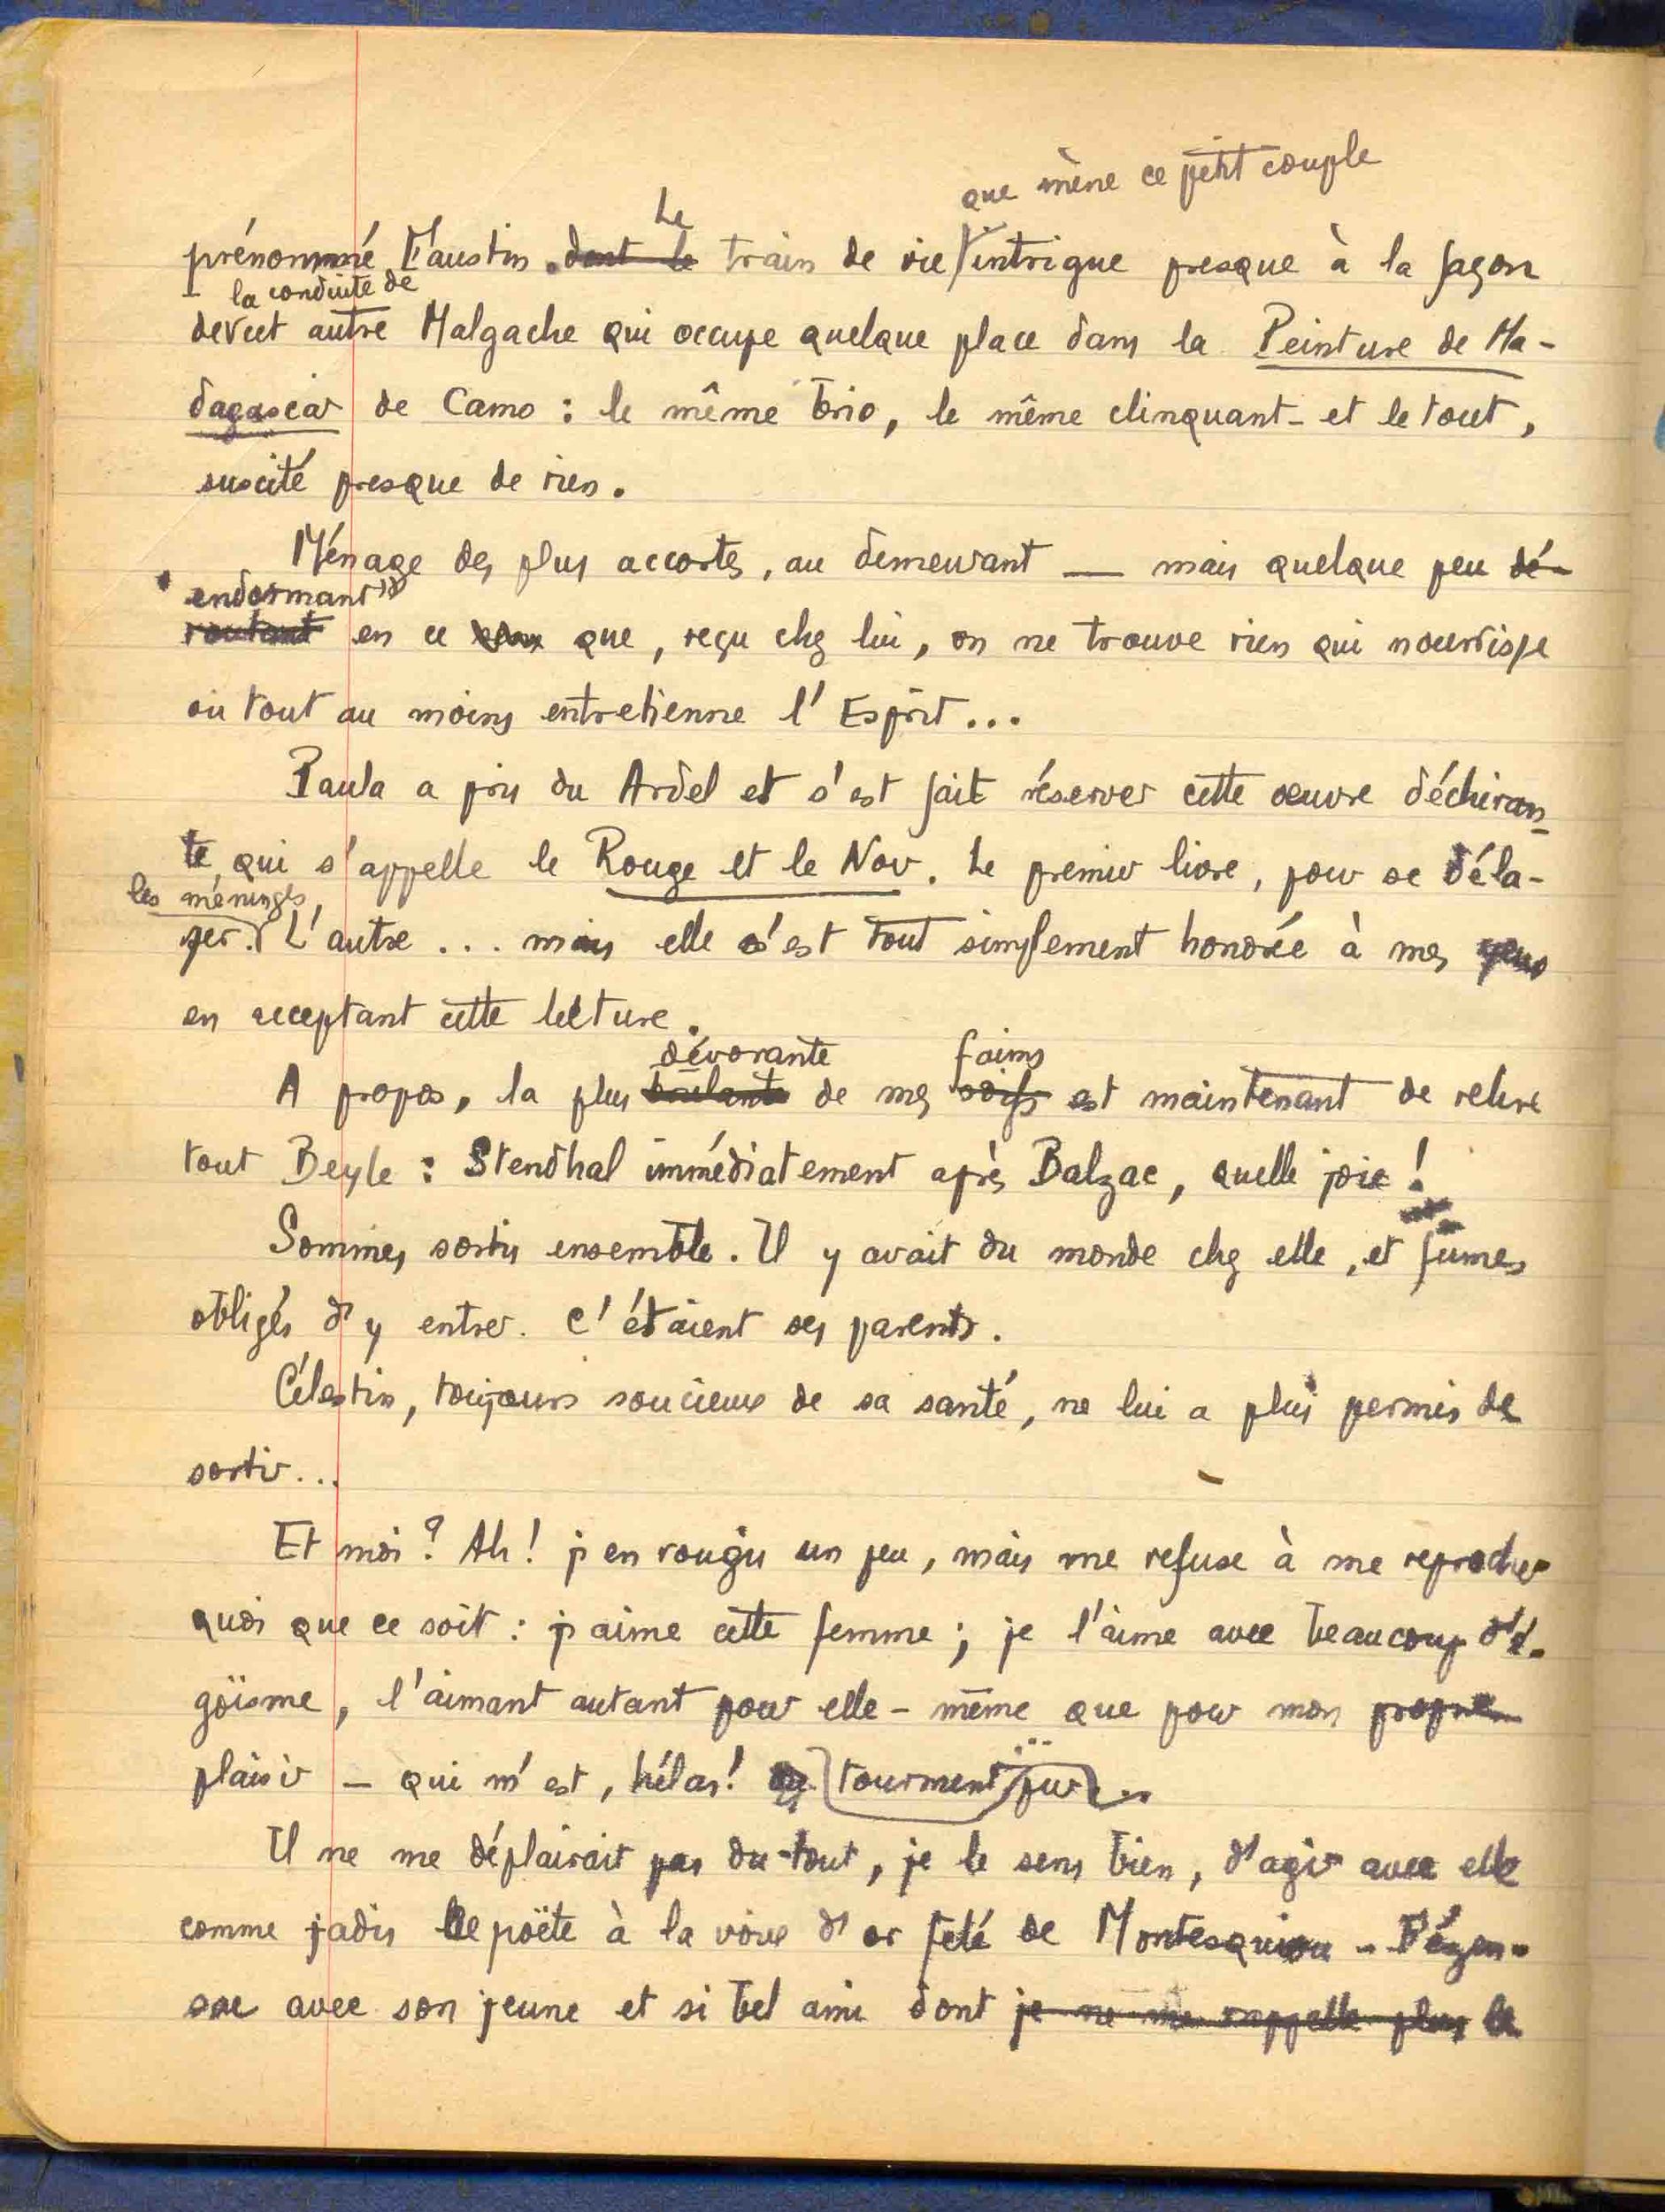 que mène ce petit couple
Le
prénommé Faustin. dont le train de vie intrigue presque à la façon
la conduite de
de cet autre Malgache qui occupe quelque place dans la Peinture de Ma-
dagascar de Camo : le même brio, le même clinquant - et le tout,
suscité presque de rien.
Ménage des plus accortes, au demeurant — mais quelque peu dé-
endormant
routant en ce que, reçu chez lui, on ne trouve rien qui nourrisse
ou tout au moins entretienne l'Esprit...
Paula a pris du Ardel et s'est fait réserver cette œuvre déchiran-
te, qui s'appelle le Rouge et le Noir. Le premier livre, pour se déla-
les méninges,
ser. L'autre ... mais elle s'est tout simplement honorée à mes yeux
en acceptant cette lecture.
dévorante faims
A propos, la plus brûlante de mes soifs est maintenant de relire
tout Beyle : Stendhal immédiatement après Balzac, quelle joie !
Sommes sortis ensemble. Il y avait du monde chez elle, et fûmes
obligés d'y entrer. C'étaient ses parents.
Célestin, toujours soucieux de sa santé, ne lui a plus permis de
sortir...
Et moi ? Ah ! j'en rougis un peu, mais me refuse à me reprocher
quoi que ce soit : j'aime cette femme ; je l'aime avec beaucoup d'é-
goïsme, l'aimant autant pour elle-même que pour mon propre
plaisir — qui m'est, hélas ! tourment pur...
Il ne me déplairait pas du tout, je le sens bien, d'agir avec elle
comme jadis le poëte à la voix d'or fêlé de Montesquiou - Fézen-
sac avec son jeune et si bel ami dont je ne me rappelle plus le